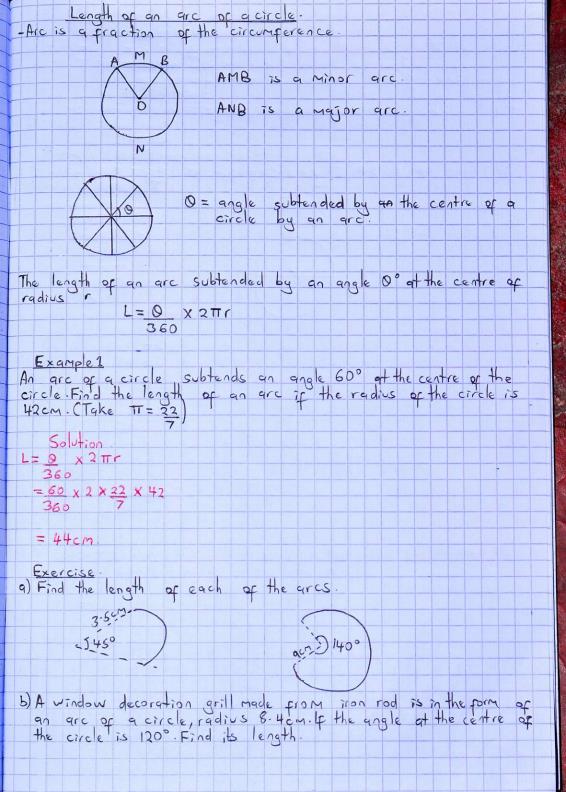 Length of an arc of a circle.
-Arc is a fraction of the circumference.
M
A B
O
N
AMB is a minor arc.
ANB is a major arc.
θ
θ = angle subtended by the centre of a
circle by an arc.
The length of an arc subtended by an angle θ° at the centre of
radius r
L = θ/360 × 2πr
Example 1
An arc of a circle subtends an angle 60° at the centre of the
circle. Find the length of an arc if the radius of the circle is
42cm. (Take π = 22/7)
Solution
L = θ/360 × 2πr
= 60/360 × 2 × 22/7 × 42
= 44cm
Exercise.
a) Find the length of each of the arcs.
3.5cm
45°
9cm 140°
b) A window decoration grill made from iron rod is in the form of
an arc of a circle, radius 8.4cm. If the angle at the centre of
the circle is 120°. Find its length.